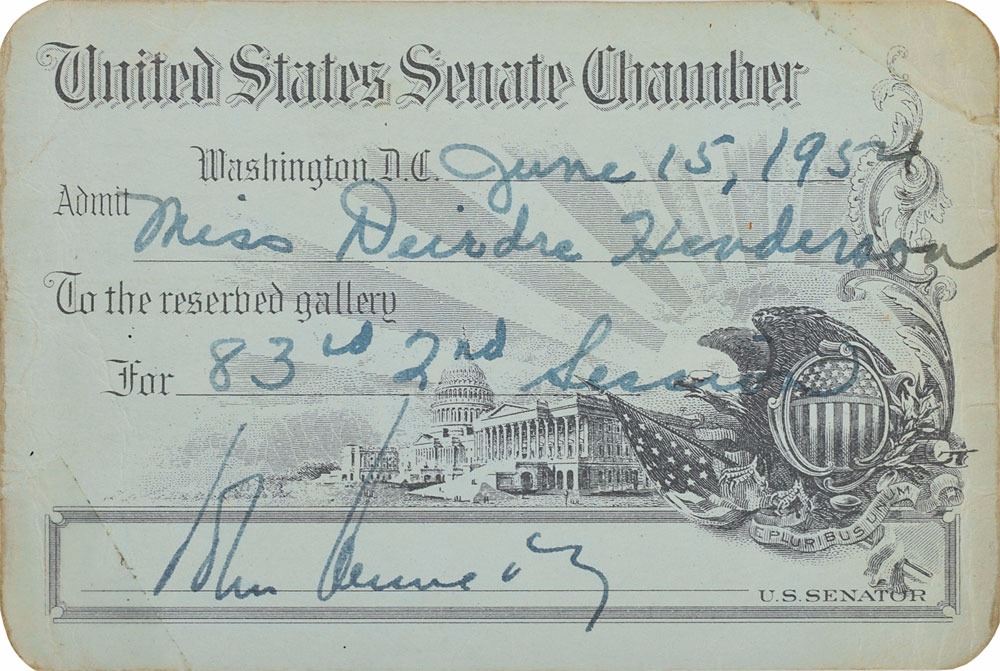 United States Senate Chamber
Washington, D.C. June 15, 1954
Admit Miss Deirdre Henderson
To the reserved gallery
For 83rd 2nd Session
John Kennedy
U.S. SENATOR
E PLURIBUS UNUM